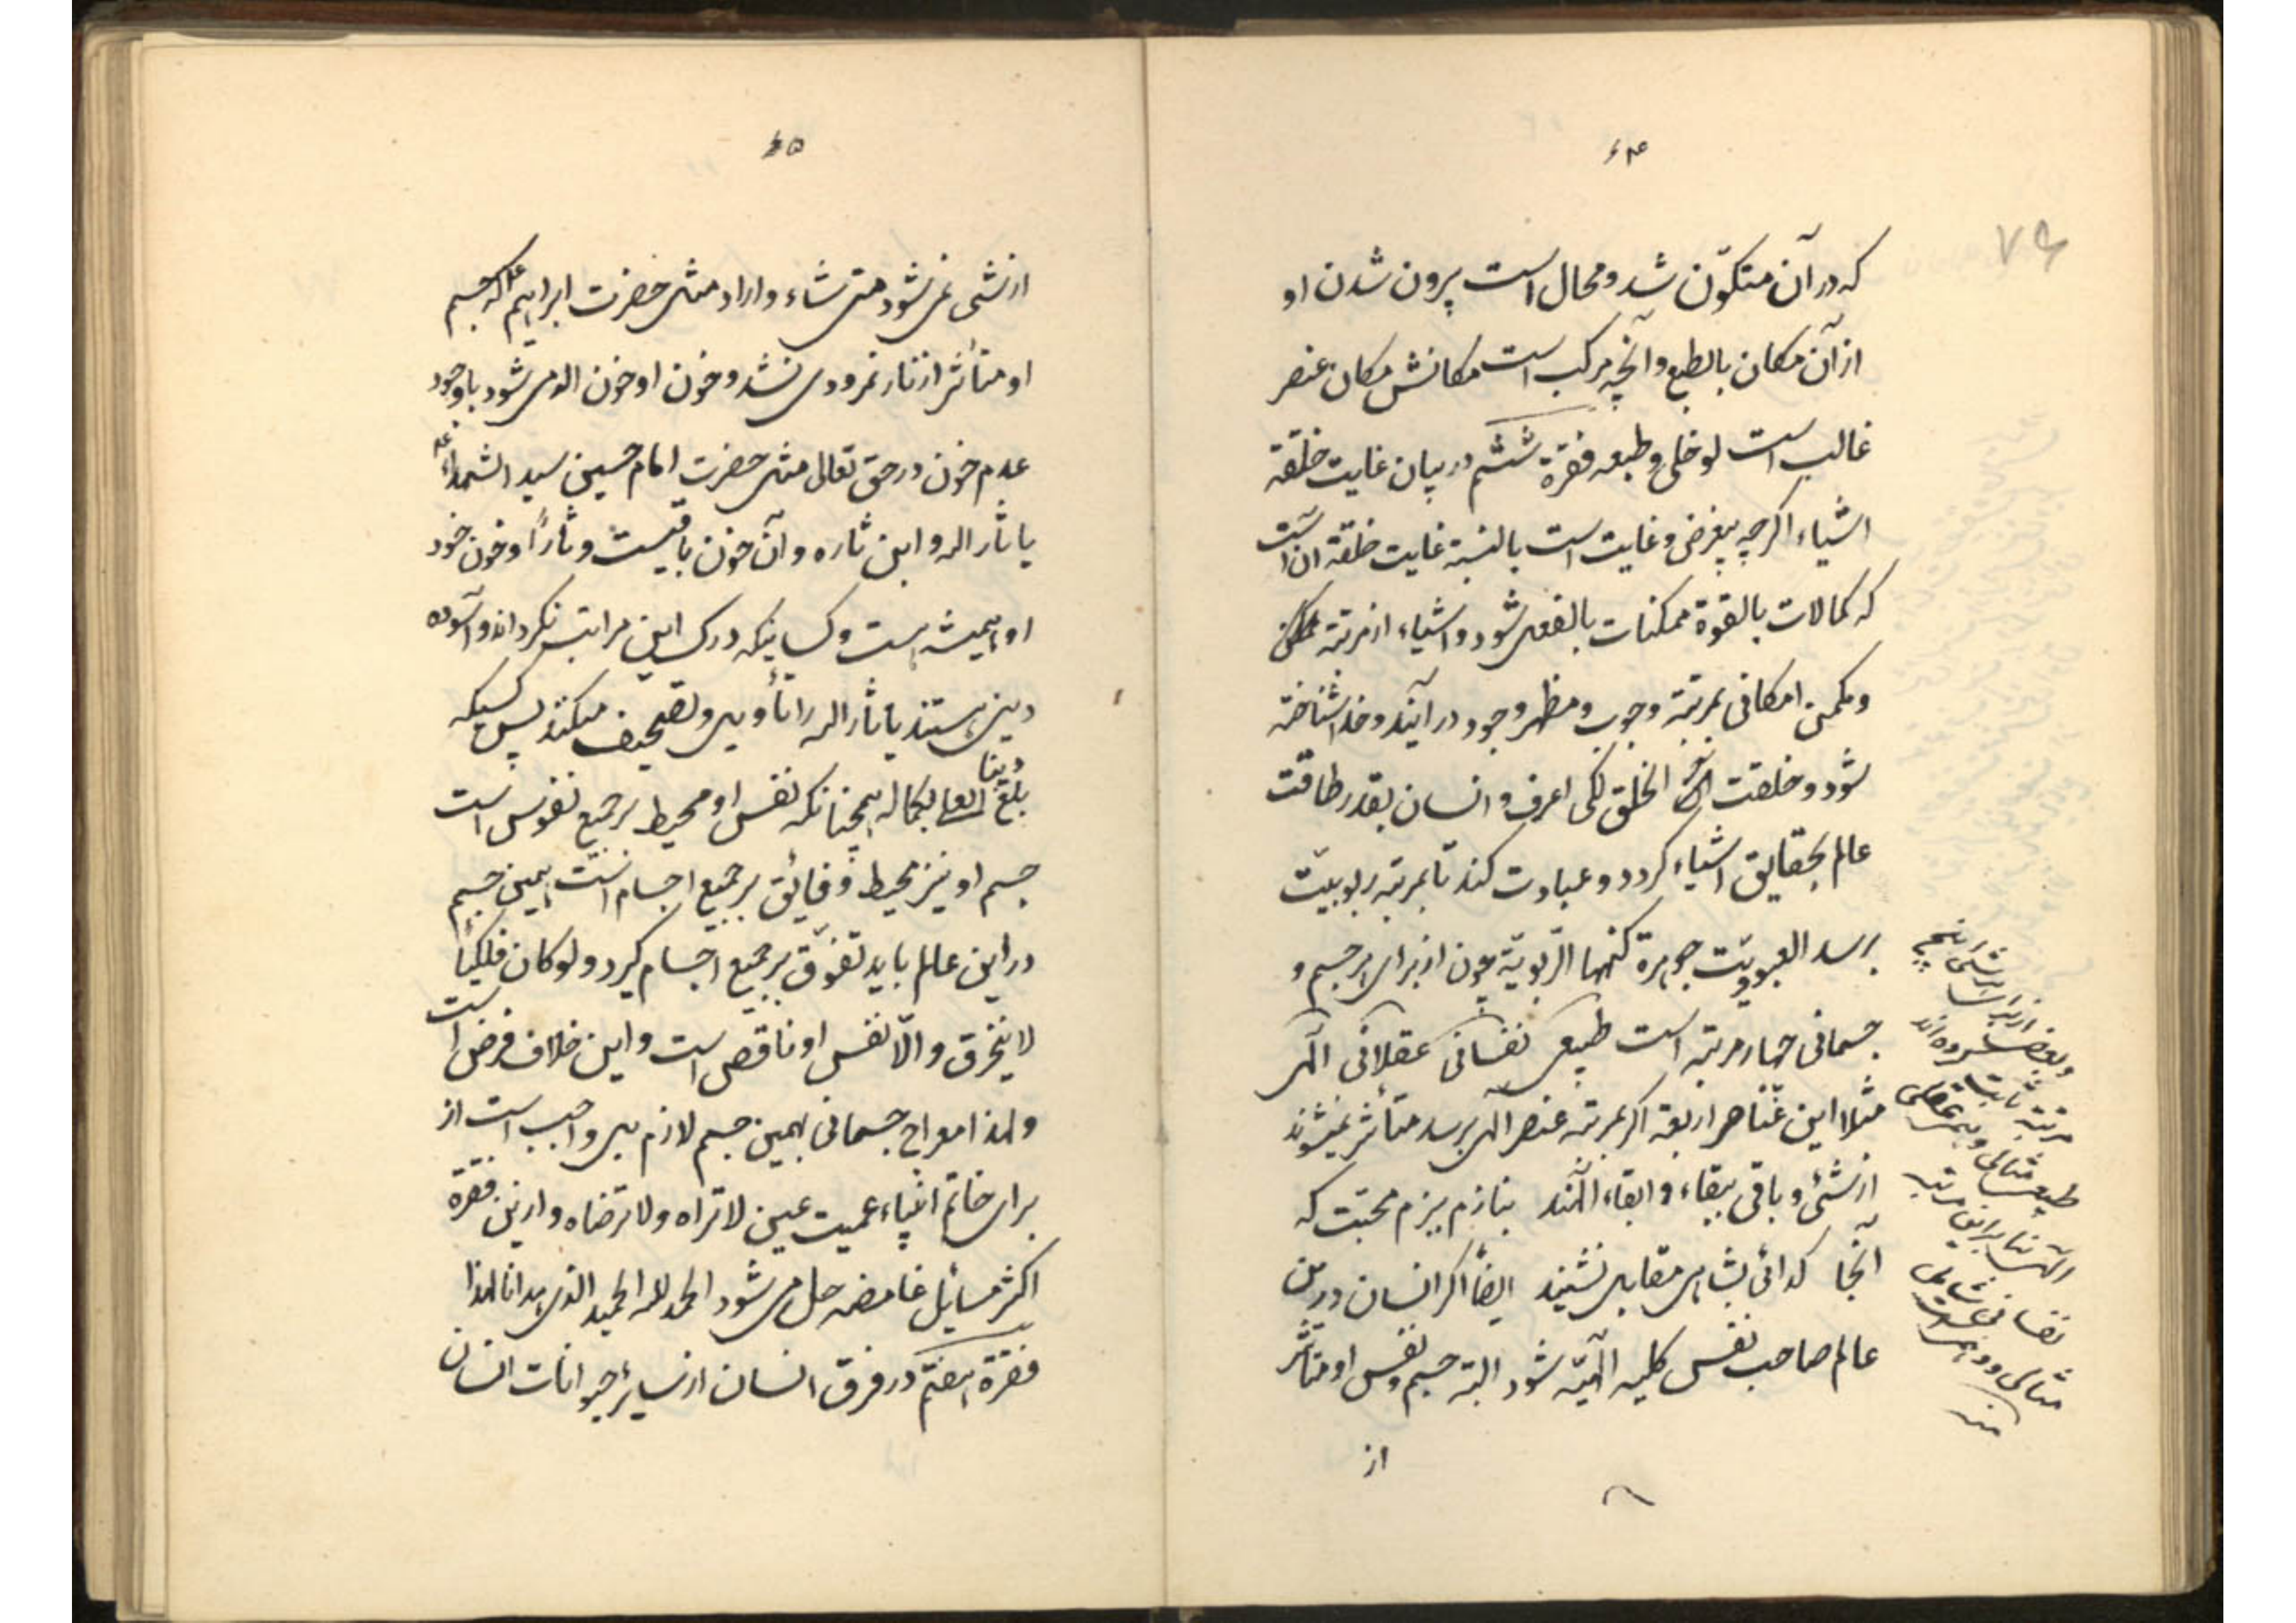 ۶۴
که در آن متکوّن شد و محال است بیرون شدن او
از آن مکان بالطبع و آنچه مرکب است مکانش مکان عنصر
غالب است لو خلی و طبعه فقرة ششم در بیان غایت خلقة
اشیاء اگرچه بیغرض و غایت است بالنسبة غایت خلقة آن است
که کمالات بالقوة ممکنات بالفعل شود و اشیاء از مرتبة
و مکمن امکانی بمرتبة وجوب و مظهر وجود در آیند و خدا شناخته
شود و خلقت الخلق لکی اعرف و انسان بقدر طاقت
عالم بحقایق اشیاء گردد و عبادت کند تا بمرتبه ربوبیّت
برسد العبودیّت جوهرة کنهها الرّبوبیّة چون از برای هر جسم و
جسمانی چهار مرتبه است طبیعی نفسانی عقلانی الهی
مثلا این عناصر اربعه اگر بمرتبه عنصر الهی برسد متأثر نمیشوند
از شئ و باقی ببقاء و ابقاء الهند بنازم ببزم محبت که
آنجا گدائی بشاهی مقابل نشیند ایضاً اگر انسان در این
عالم صاحب نفس کلیه الهیّه شود البته جسم و نفس او متأثر
از
و بعضی از برای هر شئ پنج
مرتبه ثابت کرده اند
طبیعی مثالی عقلی
الهی بنا بر این مرتبه
نفسانی شامل
مثالی و است
منه
۶۵
از شئی نمی شود متی شاء و اراد مثل حضرت ابراهیم ع که جسم
او متأثر از نار نمرودی نشد و خون او خون الله می شود با وجود
عدم خون در حق تعالی مثل حضرت امام حسین سید الشهداء ع
یا ثار الله و ابن ثاره و آن خون باقیست و ثاراً و خون خود
او همیشه هست و کسانیکه درک این مراتب نکرده اند و آسوده
دین هستند یا ثار الله را تأویل و تصحیف میکنند پس کسیکه
بلغ العلی بکماله همچنانکه نفس او محیط بر جمیع نفوس است
جسم او نیز محیط و فایق بر جمیع اجسام است همین جسم
در این عالم باید تفوّق بر جمیع اجسام گیرد و لو کان فلکیاً
لا ینخرق و الّا نفس او ناقص است و این خلاف فرض است
و لهذا معراج جسمانی بهمین جسم لازم بل واجب است از
برای خاتم انبیاء عمیت عین لا تراه و لا ترضاه و از این فقره
اکثر مسائل غامضه حل می شود الحمد لله الحمید الذی هدانا لهذا
فقرة هفتم در فرق انسان از سایر حیوانات انسان